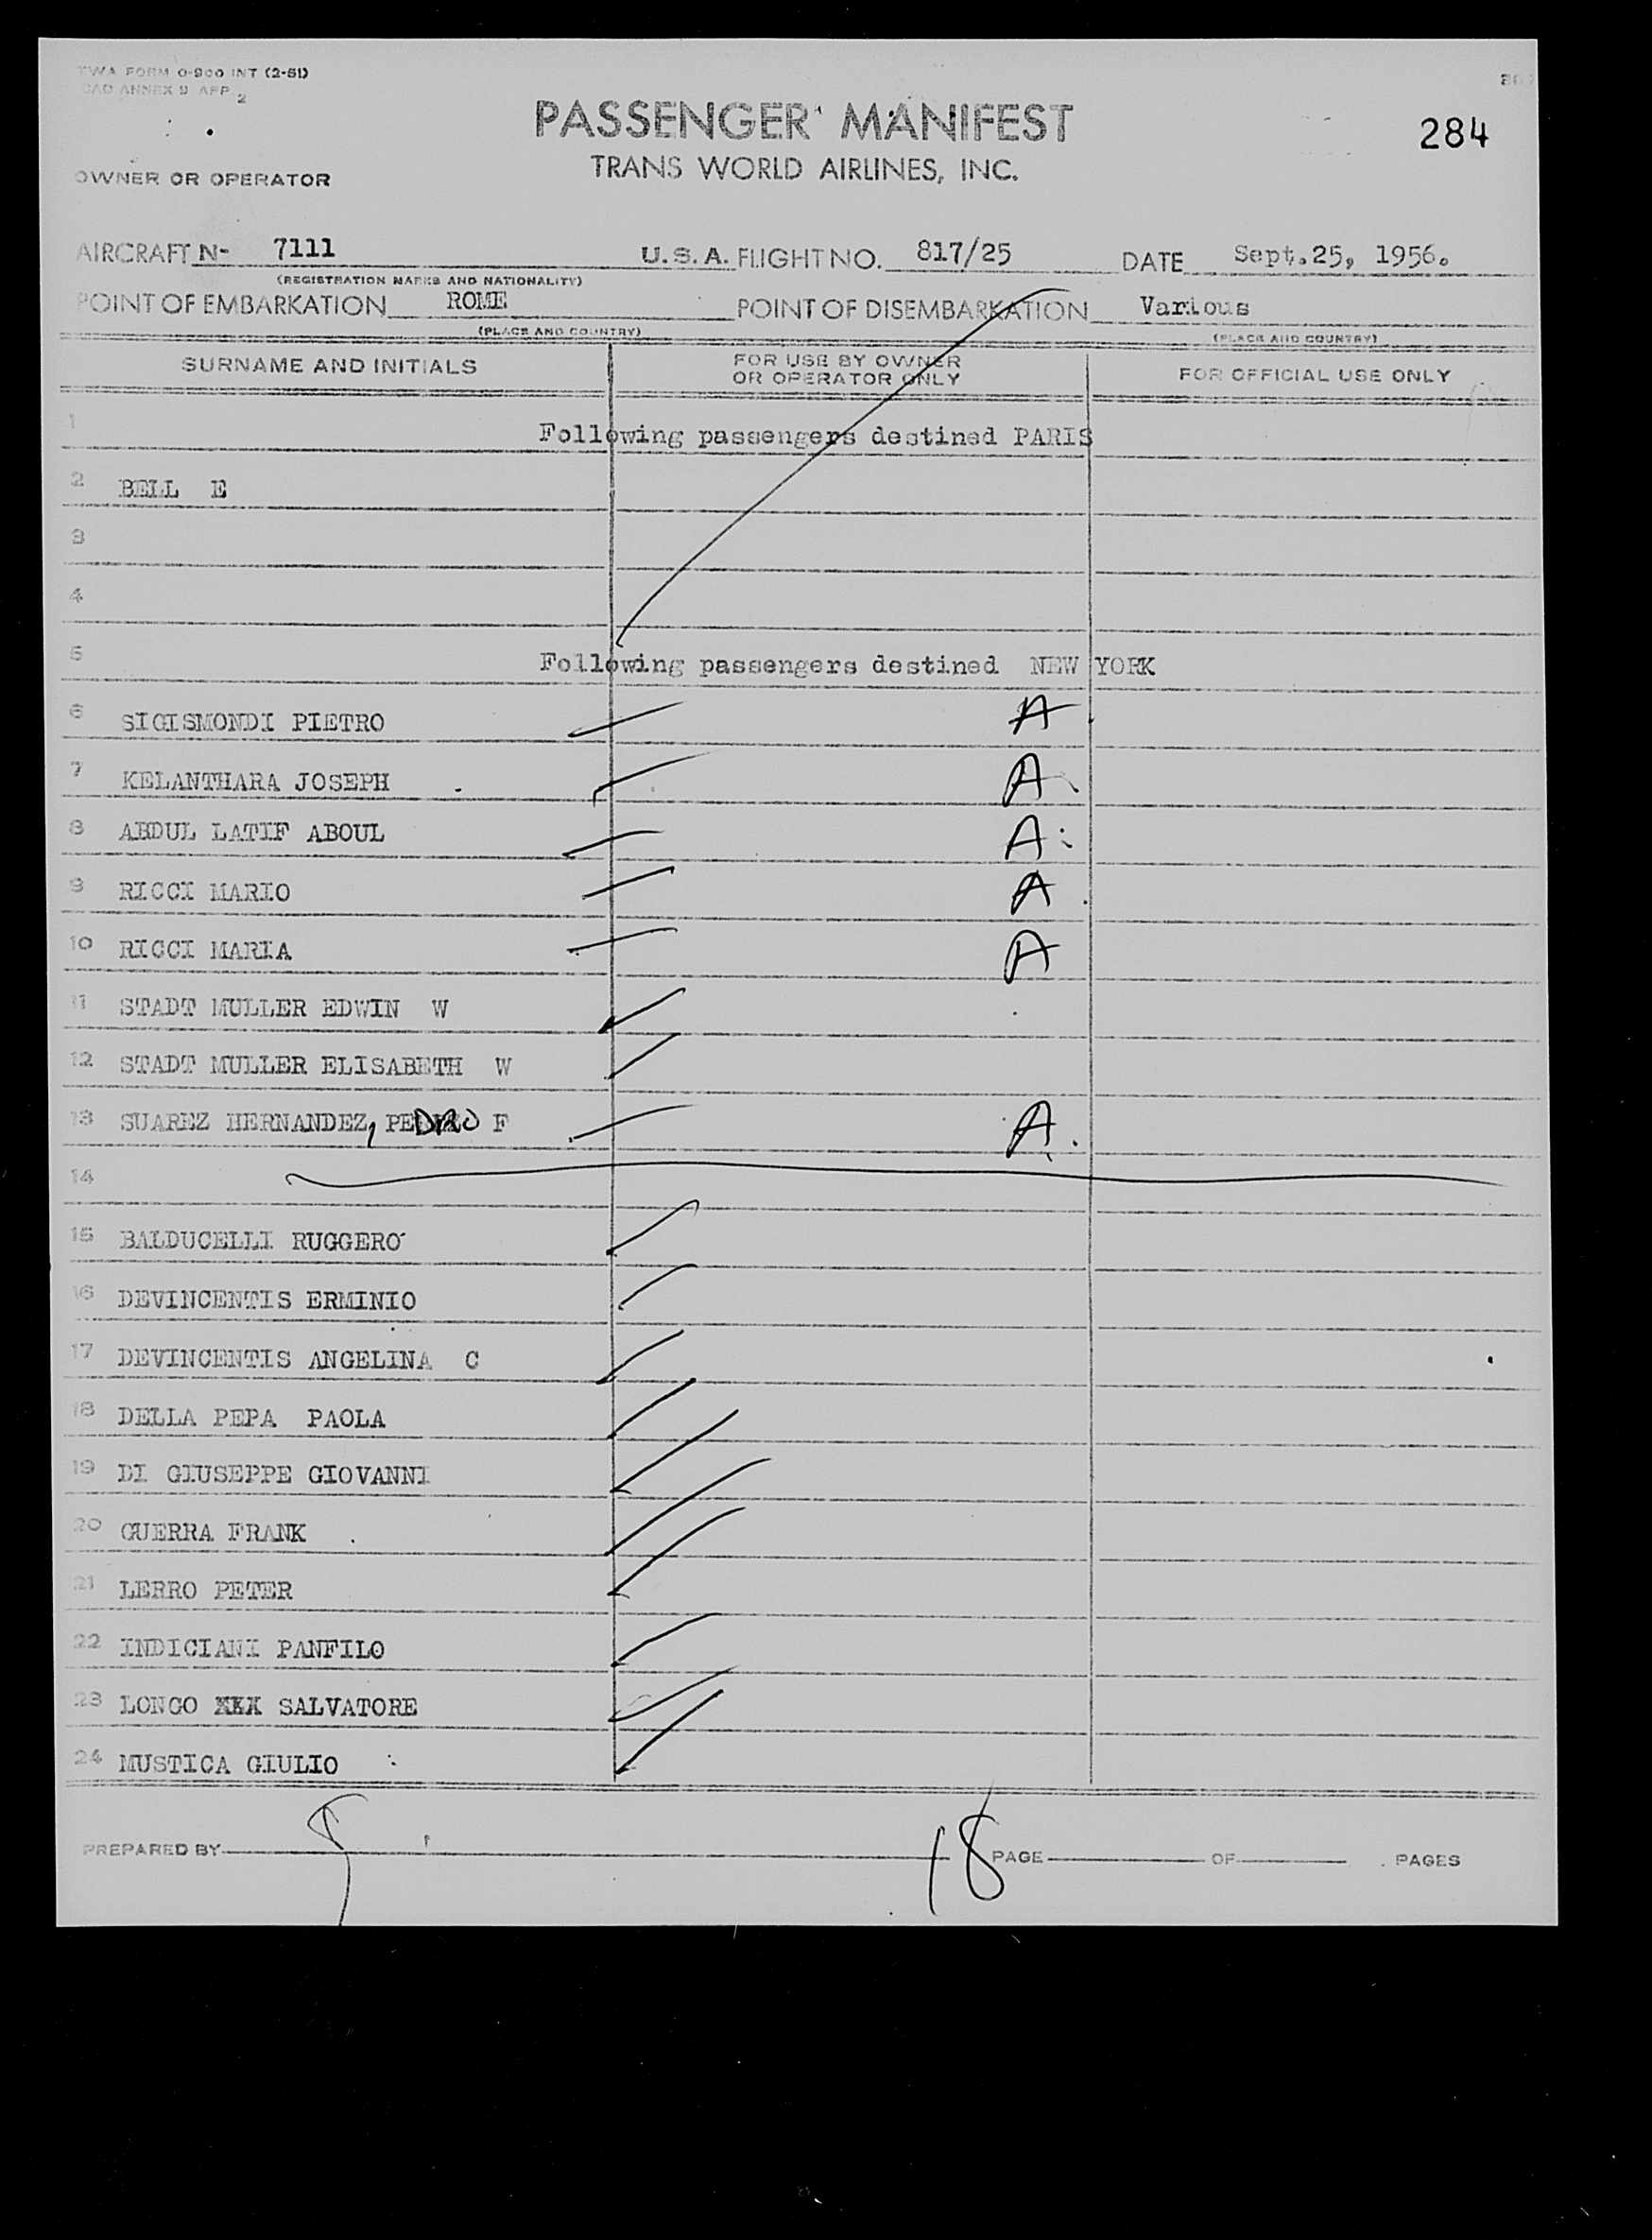 TWA FORM O-900 INT (2-51)
ANNEX 9 APP 2
PASSENGER MANIFEST
284
TRANS WORLD AIRLINES, INC.
OWNER OR OPERATOR
AIRCRAFT N- 7111 U.S.A. FLIGHT NO. 817/25 DATE Sept.25, 1956.
(REGISTRATION MARKS AND NATIONALITY)
POINT OF EMBARKATION ROME POINT OF DISEMBARKATION Various
(PLACE AND COUNTRY) (PLACE AND COUNTRY)
SURNAME AND INITIALS FOR USE BY OWNER OR OPERATOR ONLY FOR OFFICIAL USE ONLY
1 Following passengers destined PARIS
2 BELL E
3
4
5 Following passengers destined NEW YORK
6 SIGISMONDI PIETRO A
7 KELANTHARA JOSEPH A
8 ABDUL LATIF ABOUL A
9 RICCI MARIO A
10 RICCI MARIA A
11 STADT MULLER EDWIN W
12 STADT MULLER ELISABETH W
13 SUAREZ HERNANDEZ, PEDRO F A
14
15 BALDUCELLI RUGGERO
16 DEVINCENTIS ERMINIO
17 DEVINCENTIS ANGELINA C
18 DELLA PEPA PAOLA
19 DI GIUSEPPE GIOVANNI
20 GUERRA FRANK
21 LERRO PETER
22 INDICIANI PANFILO
23 LONGO XXX SALVATORE
24 MUSTICA GIULIO
PREPARED BY 18 PAGE OF PAGES